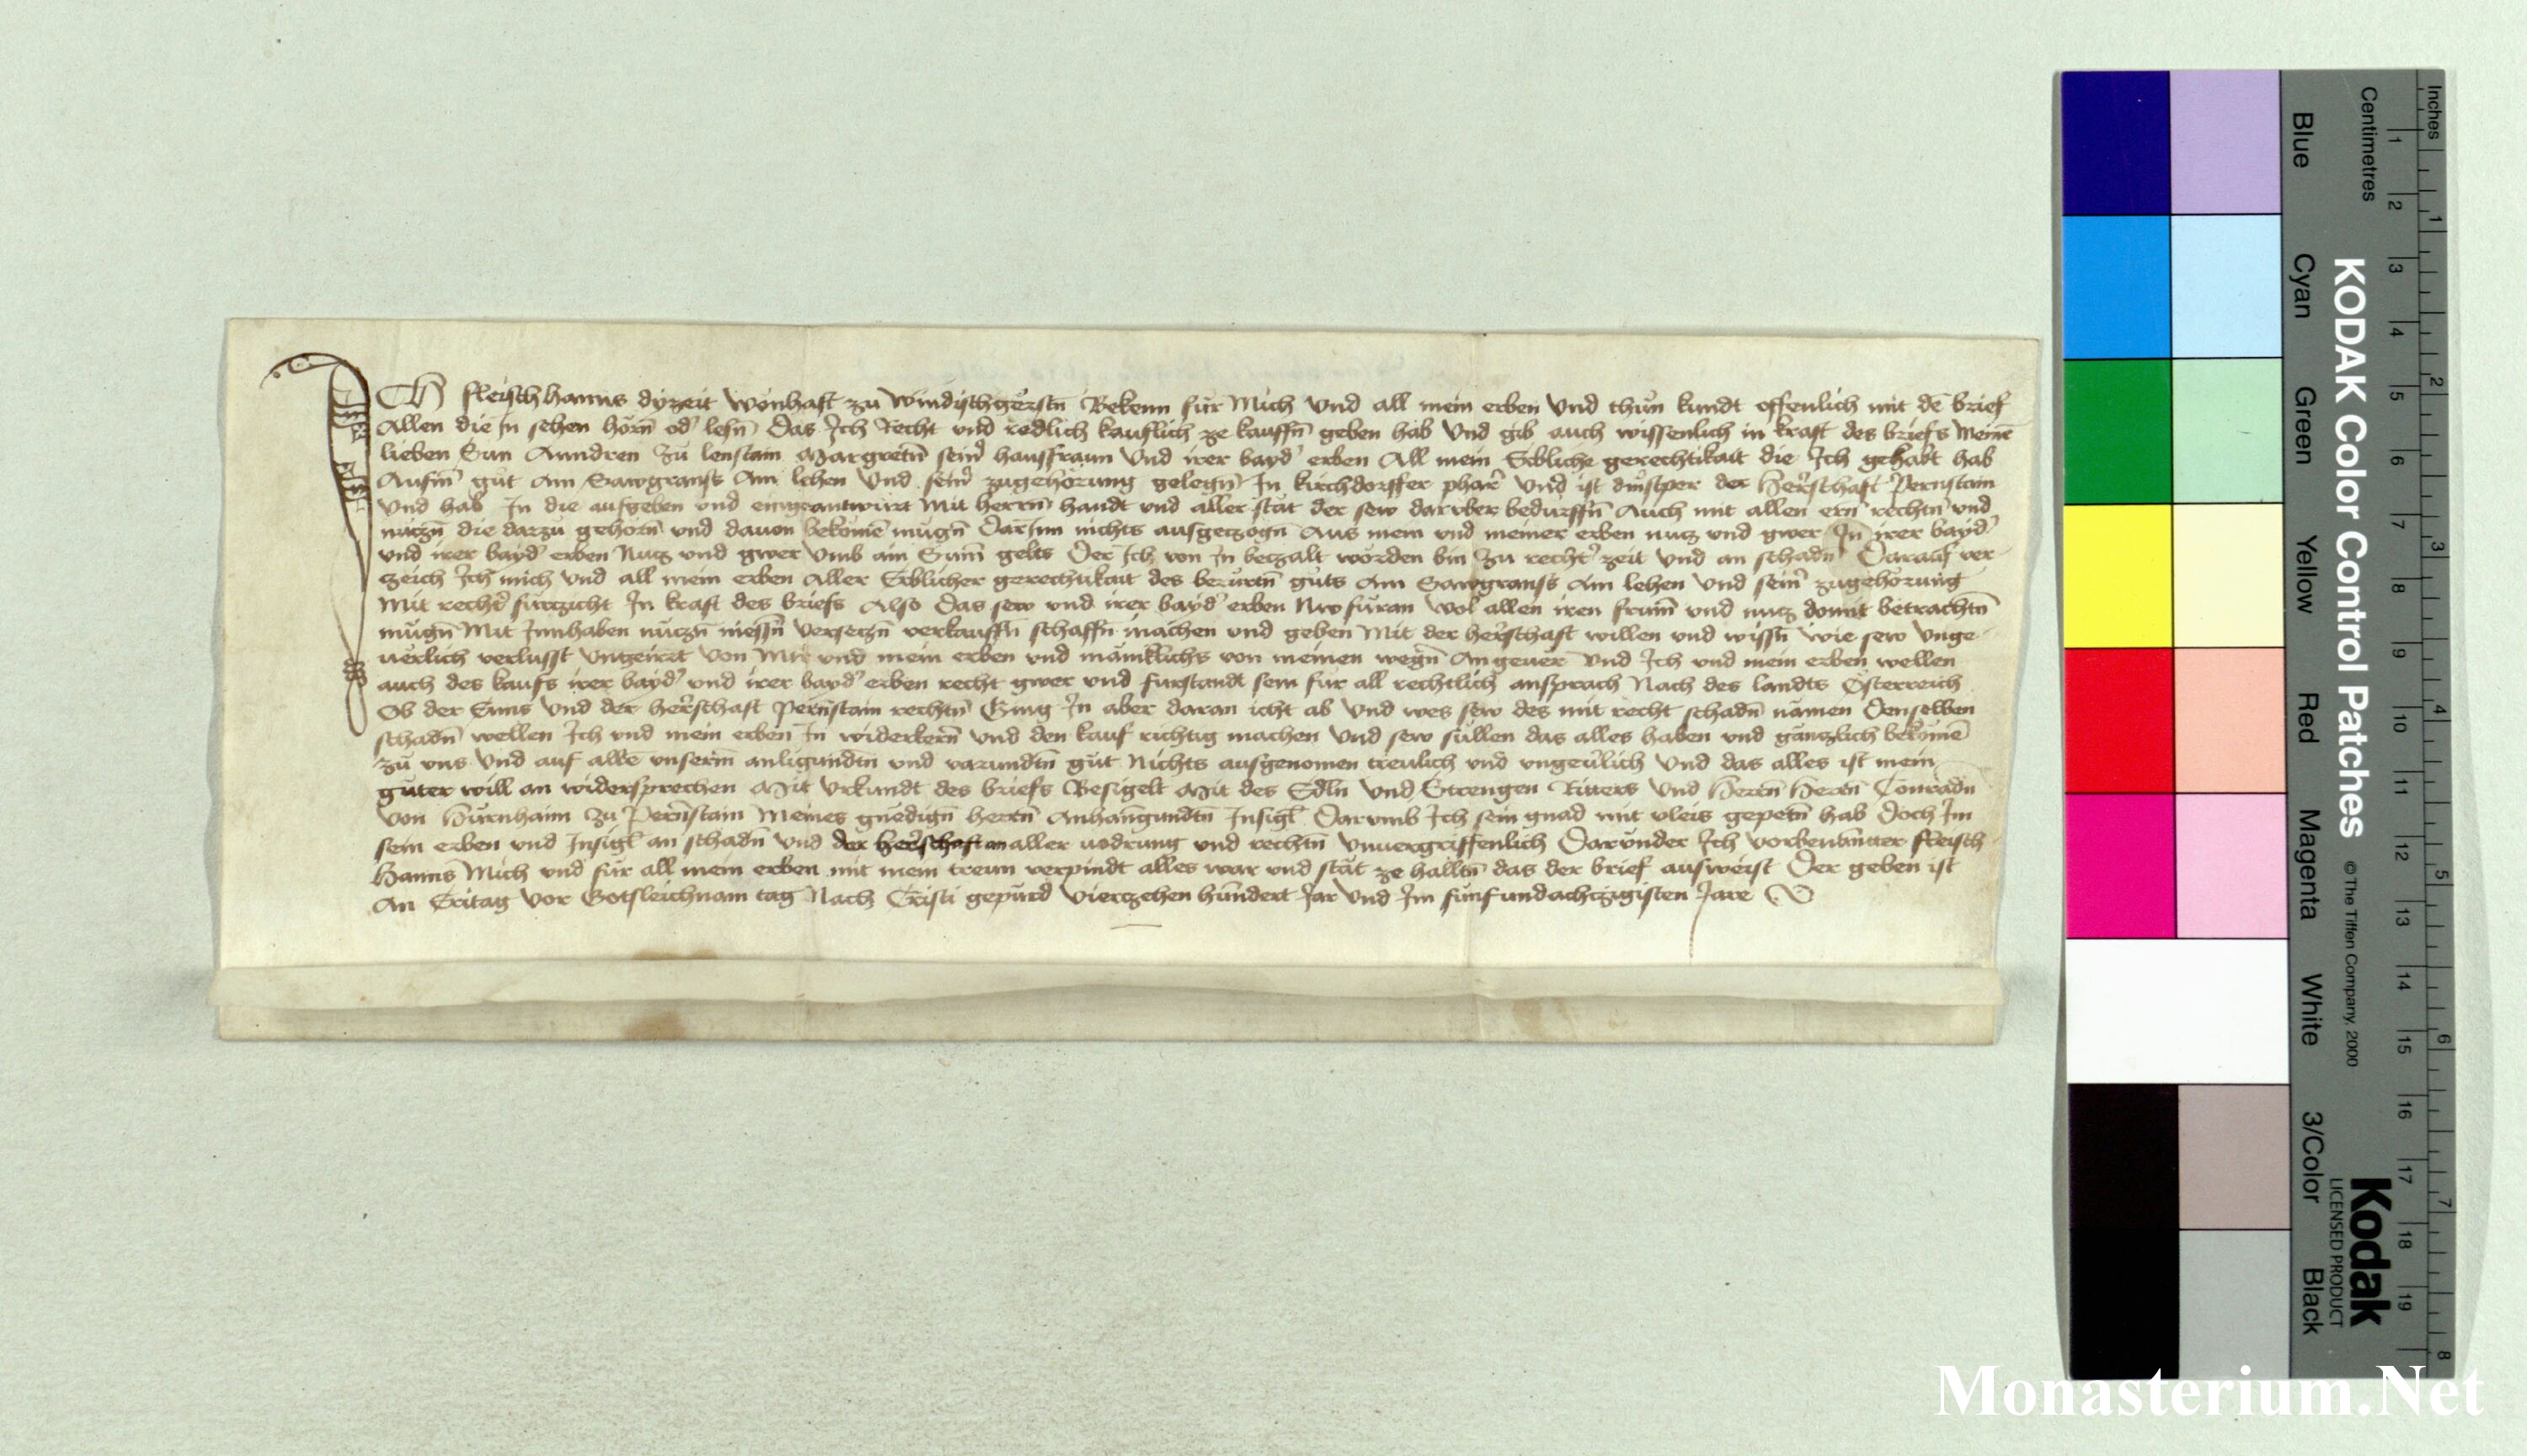 ICH fleischhanns dyzeit wonhaft zu Windischgerstn̄ Bekenn für Mich Vnd all mein erben Vnd thŭn kundt offenlich mit dē brief
Allen die in sehen hörn̄ od' lesn̄ Das Ich Recht vnd redlich kauflich ze kauffn̄ geben hab Vnd gib auch wissenlich in kraft des briefs Meinē
lieben Sun Anndren Zu lenstain Margretn̄ sein' hausfraun Vnd irer bayd' erben All mein Erbliche gerechtikait die Ich gehabt hab
Aufm̄ gŭt Am Sawgranß Am lehen Vnd sein' zugehörung gelegn̄ In kirchdorffer pharr Vnd ist dinstper der Herschaft Pernstain
Vnd hab In die aufgeben vnd eingeantwurt Mit herrn̄ handt vnd aller stät der sew darvber bedurffn̄ Auch mit allen ern̄ rechtn̄ vnd
nuczn̄ die darzu gehörn̄ vnd dauon bekömē mügn̄ Darinn nichts ausgeczogn̄ Aus mein vnd meiner erben nucz vnd gwer In irer bayd'
vnd irer bayd' erben Nucz vnd gwer Vmb ain Sum̄ gelts Der Ich von in beczalt worden bin Zu recht' zeit Vnd an schadn̄ Darauf ver-
zeich Ich mich Vnd all mein erben Aller Erblicher gerechtikait des berurtn̄ guts Am Sawgranß Am lehen Vnd sein' zugehörung
Mit recht' furczicht In kraft des briefs Also Das sew vnd irer bayd' erben Nw füran Wol allen iren frum̄ vnd nucz domit betrachtn̄
mügn̄ Mit Innhaben nüczn̄ niessn̄ Verseczn̄ verkauffn̄ schaffn̄ machen vnd geben Mit der herschaft willen vnd wissn̄ Wie sew Vnge-
uerlich verlusst Vngeirrt Von Mir vnd mein erben vnd mäniklichs von meinen wegn̄ Angeuer Vnd Ich vnd mein erben wellen
auch des kaufs irer bayd' vnd irer bayd' erben recht gwer vnd furstandt sein fur all rechtlich ansprach Nach des landts Österreich
Ob der Enns Vnd der herschaft Pernstain rechtn̄ Ging In aber daran icht ab Vnd wes sew des mit recht schadn̄ nämen Denselben
schadn̄ wellen Ich vnd mein erben In widerkern̄ Vnd den kauf richtig machen Vnd sew sullen das alles haben vnd gänczlich bekömē
zu vns Vnd auf allē vnserm̄ anligundtn̄ vnd varundtn̄ gŭt Nichts ausgenomen treulich vnd vngeuerlich Vnd das alles ist mein
güter will an widersprechen Mit Vrkundt des briefs Besigelt Mit des Edln̄ Vnd Strengen Ritters Vnd Herrn̄ Herrn̄ Conradn̄
Von Hŭrnhaim Zu Pernstain Meines gnedign̄ herrn̄ Anhangundtn̄ Insigl Darvmb Ich sein gnad mit vleis gepetn̄ hab Doch Im
sein erben vnd Insigl an schadn̄ Vnd der herschaft an aller uodrung vnd rechtn̄ Vnuergriffenlich Darunder Ich vorbenannter fleisch-
hanns Mich vnd für all mein erben mit mein treun verpindt alles war vnd stät ze halltn̄ das der brief ausweist Der geben ist
An Eritag Vor Gotsleichnam tag Nach Cristi gepurd Vierczehen hundert Jar Vnd Im funfundachtzigisten Jare
Inches
Centimetres
KODAK Color Control Patches
© The Tiffen Company, 2000
Kodak
LICENSED PRODUCT
Blue
Cyan
Green
Yellow
Red
Magenta
White
3/Color
Black
Monasterium.Net